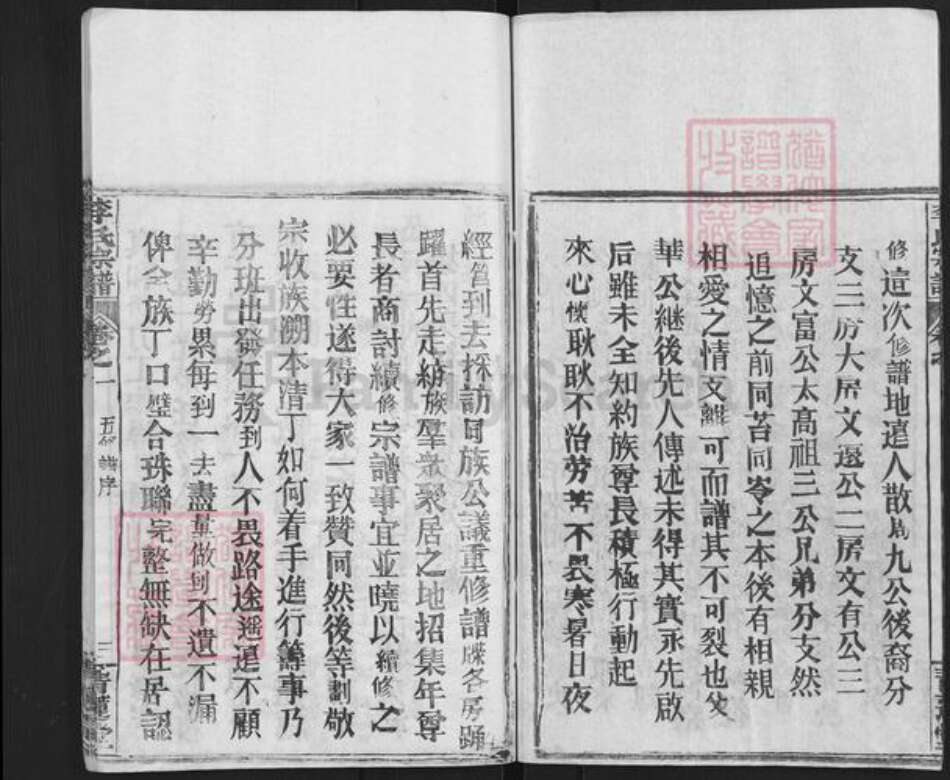 修這次修譜地遠人散為九公後裔分
支三房大房文選公二房文有公三
房文富公太高祖三公兄弟分支然
追憶之前同苦同岑之本後有相親
相愛之情支離可而譜其不可裂也父
華公繼後先人傳述未得其實永先啟
后雖未全知約族尊長積極行動起
來心懷耿耿不治劳苦不畏寒暑日夜
經管到去採訪同族公議重修譜牒各房踊
躍首先走訪族羣衆聚居之地招集年尊
長者商討續修宗譜事宜並曉以續修之
必要性遂得大家一致贊同然後等劃敬
宗收族溯本清丁如何着手進行籌事乃
分班出發任務到人不畏路途遥遠不顧
辛勤勞累每到一去盡量做到不遺不漏
俾全族丁口璧合珠聯完整無缺在居認
李氏宗譜
卷之一
五修譜序
三
青蓮堂
FamilySearch
譜學會
收氏藏